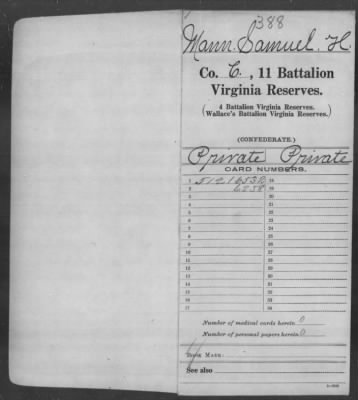 388
Mann, Samuel, H.
Co. C, 11 Battalion
Virginia Reserves.
4 Battalion Virginia Reserves.
(Wallace's Battalion Virginia Reserves.)
(CONFEDERATE.)
Private Private
CARD NUMBERS.
1 51216532 18
2 6558 19
3 20
4 21
5 22
6 23
7 24
8 25
9 26
10 27
11 28
12 29
13 30
14 31
15 32
16 33
17 34
Number of medical cards herein 0
Number of personal papers herein 0
BOOK MARK:
See also